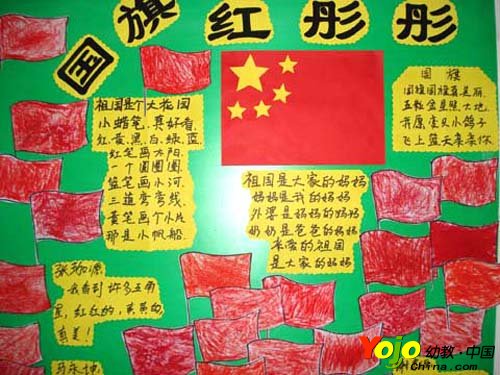 国旗红彤彤
祖国是个大花园
小蜡笔,真好看,
红、黄、黑、白、绿、蓝,
红笔画太阳,
一个圆圆圆,
蓝笔画小河,
三道弯弯线,
黄笔画个小片
那是小帆船,
祖国是大家的妈妈
妈妈是我的妈妈
外婆是妈妈的妈妈
奶奶是爸爸的妈妈
亲爱的祖国
是大家的妈妈
国旗
国旗国旗真美丽,
五颗金星照大地,
我愿变只小鸽子
飞上蓝天亲亲你
我看到许多五角
星,红红的,黄黄的,
真美!
Yojo 幼教·中国
China.com